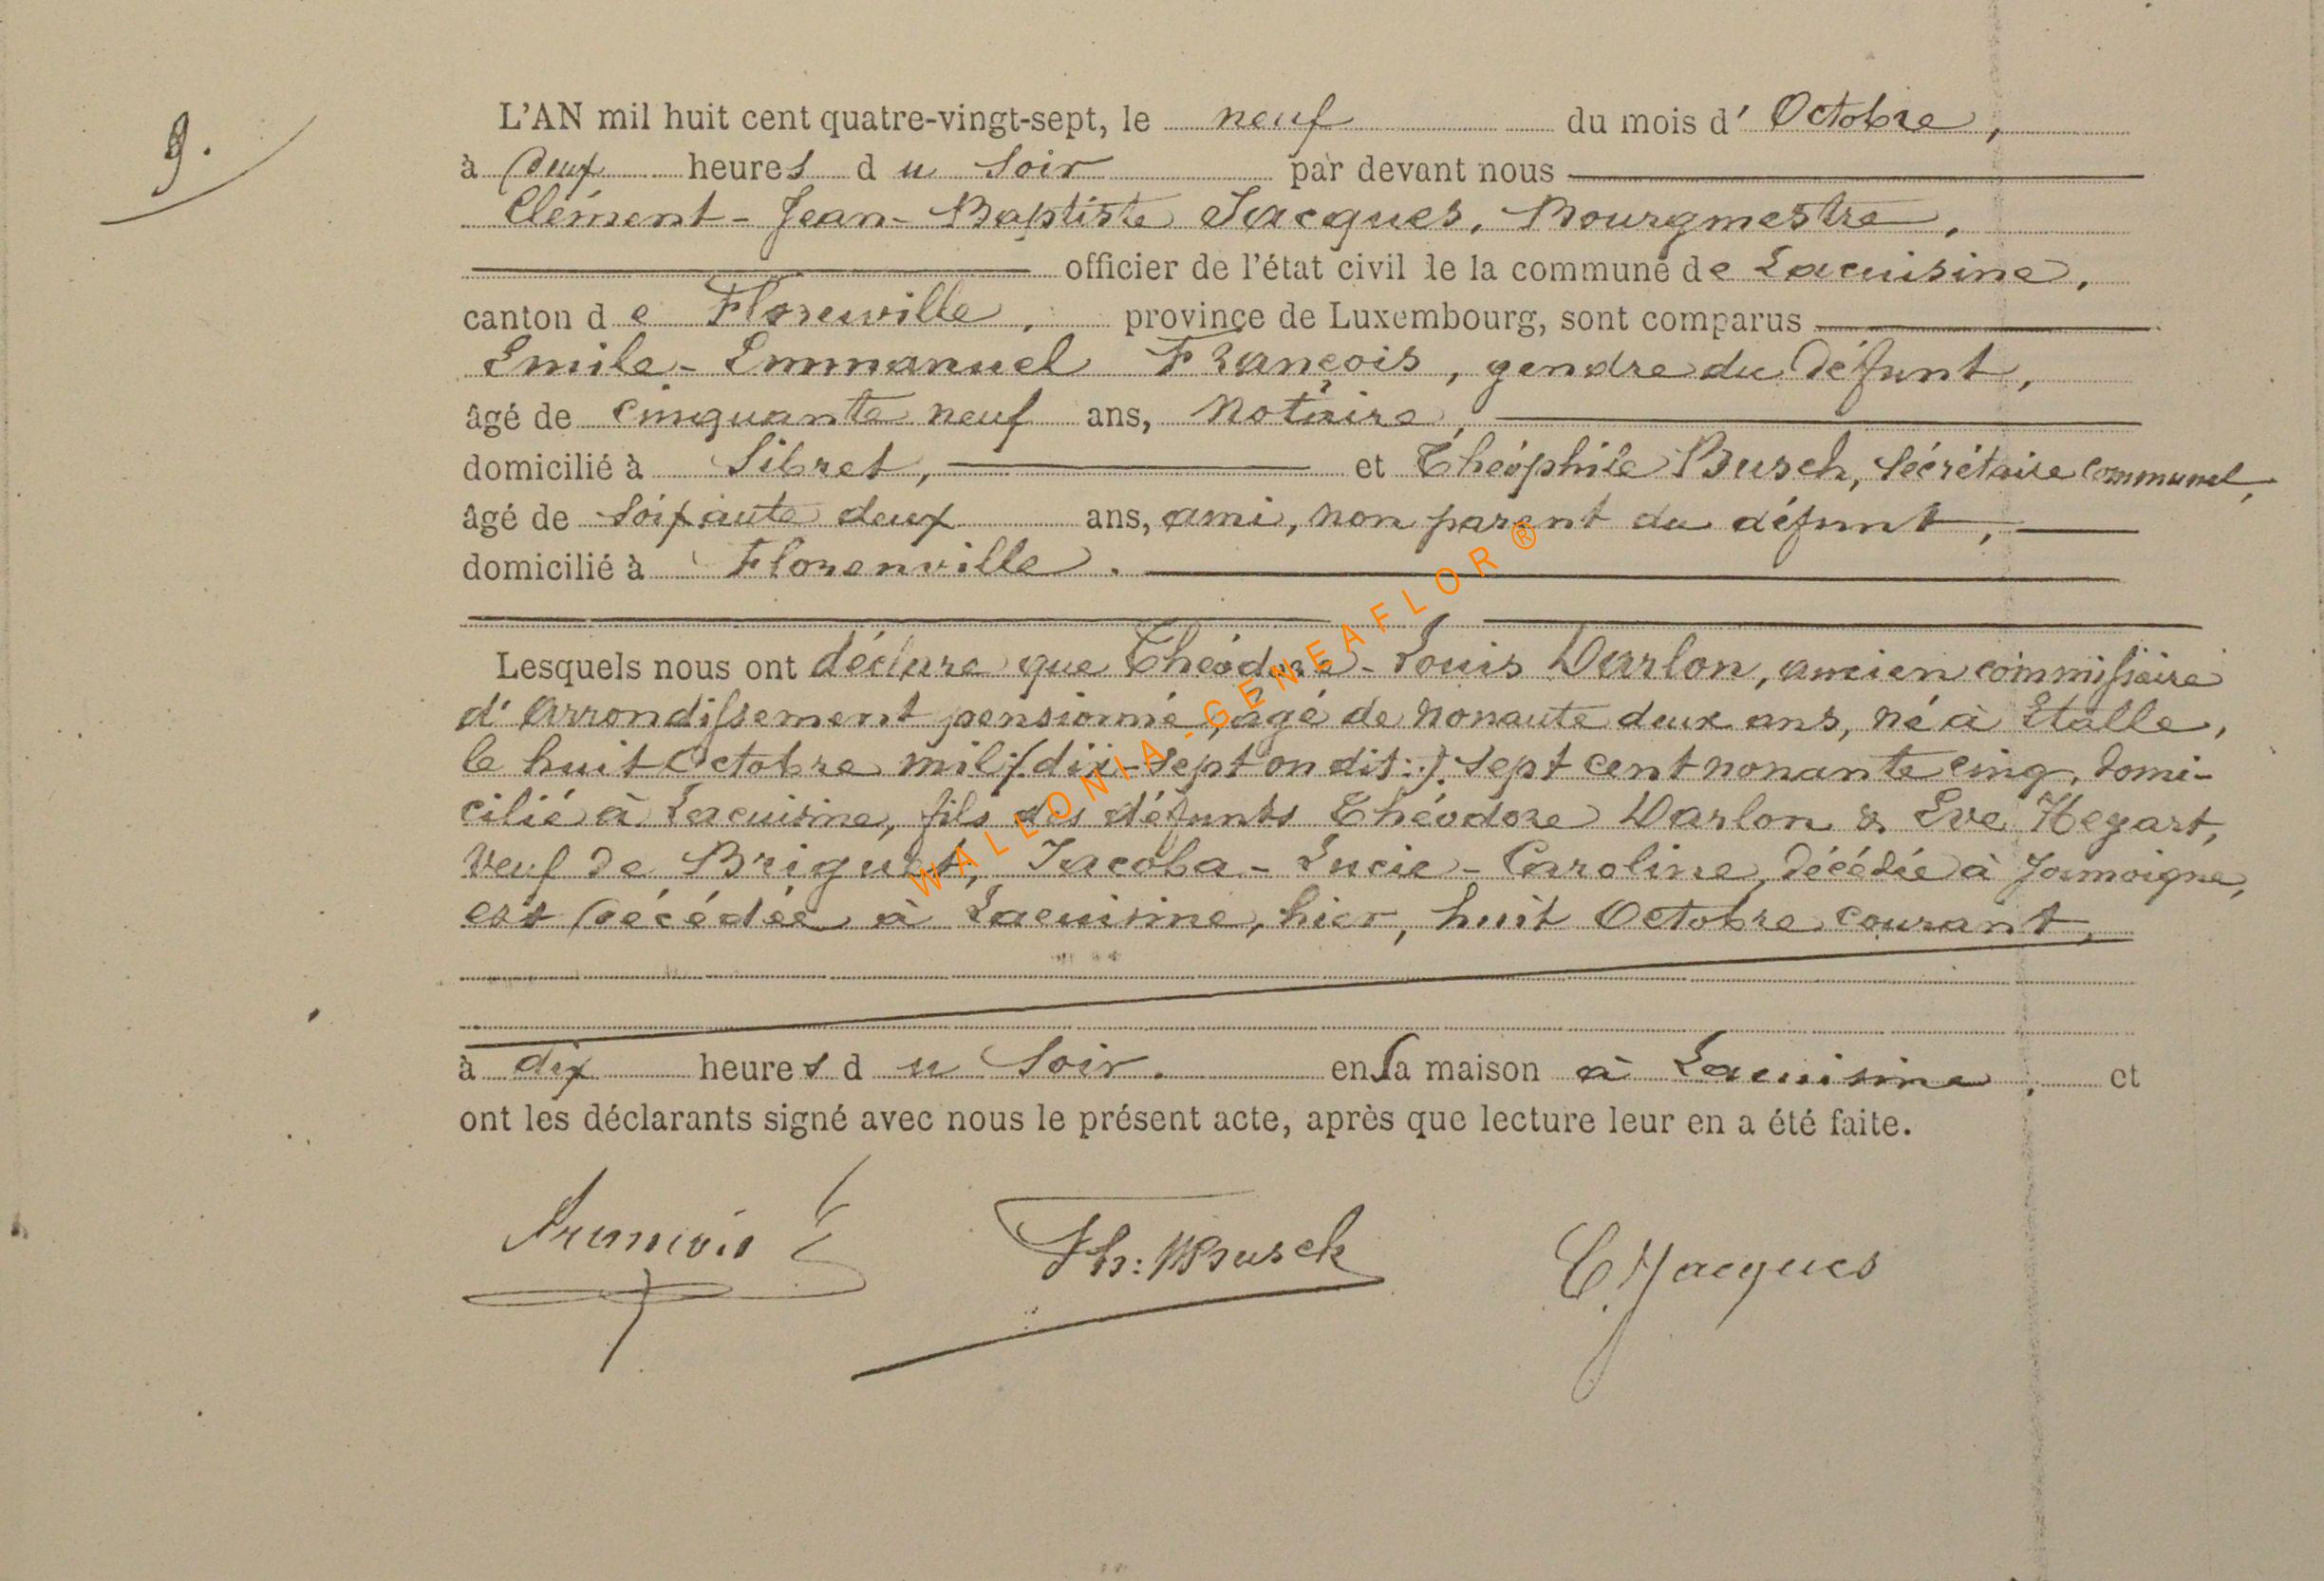 9.
L'AN mil huit cent quatre-vingt-sept, le neuf du mois d' Octobre,
à deux heures du Soir par devant nous
Clément-Jean-Baptiste Jacques, Bourgmestre,
officier de l'état civil de la commune de Lacuisine,
canton de Florenville, province de Luxembourg, sont comparus
Emile-Emmanuel François, gendre du défunt,
âgé de cinquante neuf ans, Notaire,
domicilié à Sibret, et Théophile Busch, Sécrétaire Communal,
âgé de Soixante deux ans, ami, non parent du défunt,
domicilié à Florenville.
Lesquels nous ont déclaré que Théodore-Louis Warlon, ancien commissaire
d'Arrondissement pensionné, âgé de nonante deux ans, né à Etalle,
le huit Octobre mil (:dix-Sept on dit:) Sept cent nonante cinq, domi-
cilié à Lacuisine, fils des défunts Théodore Warlon & Eve Hegart,
Veuf de Briguet, Jacoba-Lucie-Caroline, décédée à Jamoigne,
est décédée à Lacuisine, hier, huit Octobre courant,
à dix heures du Soir. en sa maison à Lacuisine, et
ont les déclarants signé avec nous le présent acte, après que lecture leur en a été faite.
François E Th: Busch C. Jacques
WALLONIA-GENEAFLOR ®